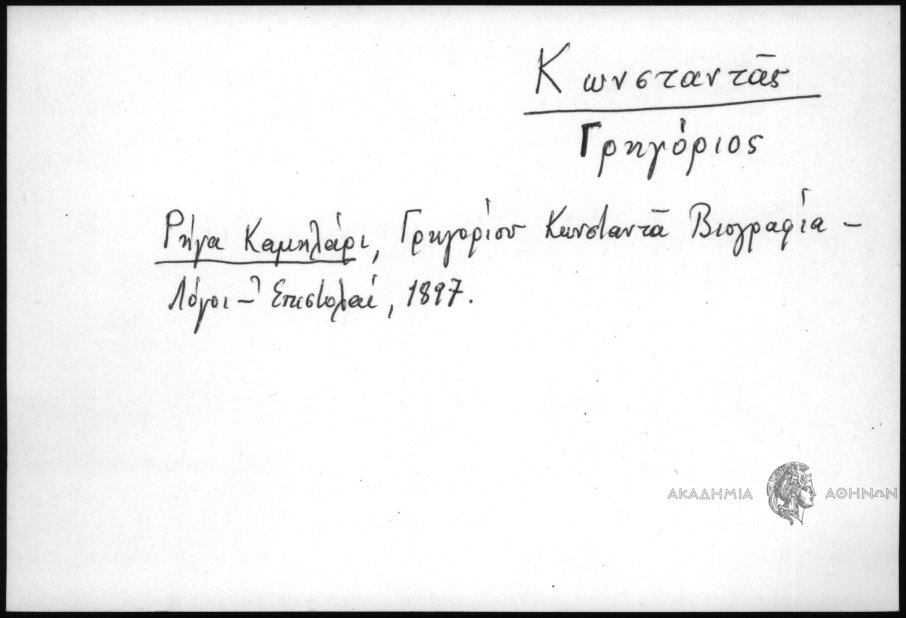 Κωνσταντᾶς
Γρηγόριος
Ρήγα Καμηλάρι, Γρηγορίου Κωνσταντᾶ Βιογραφία –
Λόγοι – Ἐπιστολαί, 1897.
ΑΚΑΔΗΜΙΑ ΑΘΗΝΩΝ